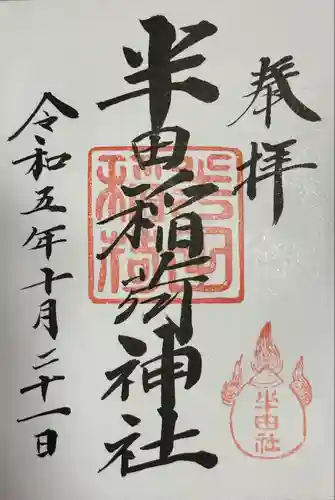 奉拝
半田稲荷神社
令和五年十月二十一日
半田稲荷
半田社